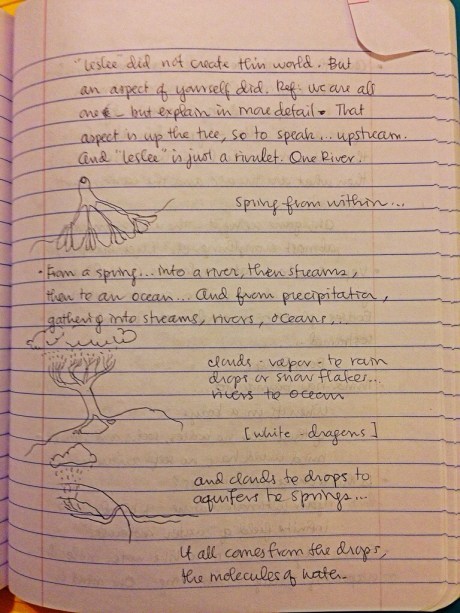 "Leslee" did not create this world. But
an aspect of yourself did. Ref: we are all
one - but explain in more detail. That
aspect is up the tree, so to speak... upstream.
And "Leslee" is just a rivulet. One River.
Spring from within...
· From a spring... into a river, then streams,
then to an ocean... And from precipitation,
gathering into streams, rivers, oceans...
clouds - vapor - to rain
drops or snowflakes...
rivers to ocean
[white - dragons]
and clouds to drops to
aquifers to springs...
It all comes from the drops,
the molecules of water.